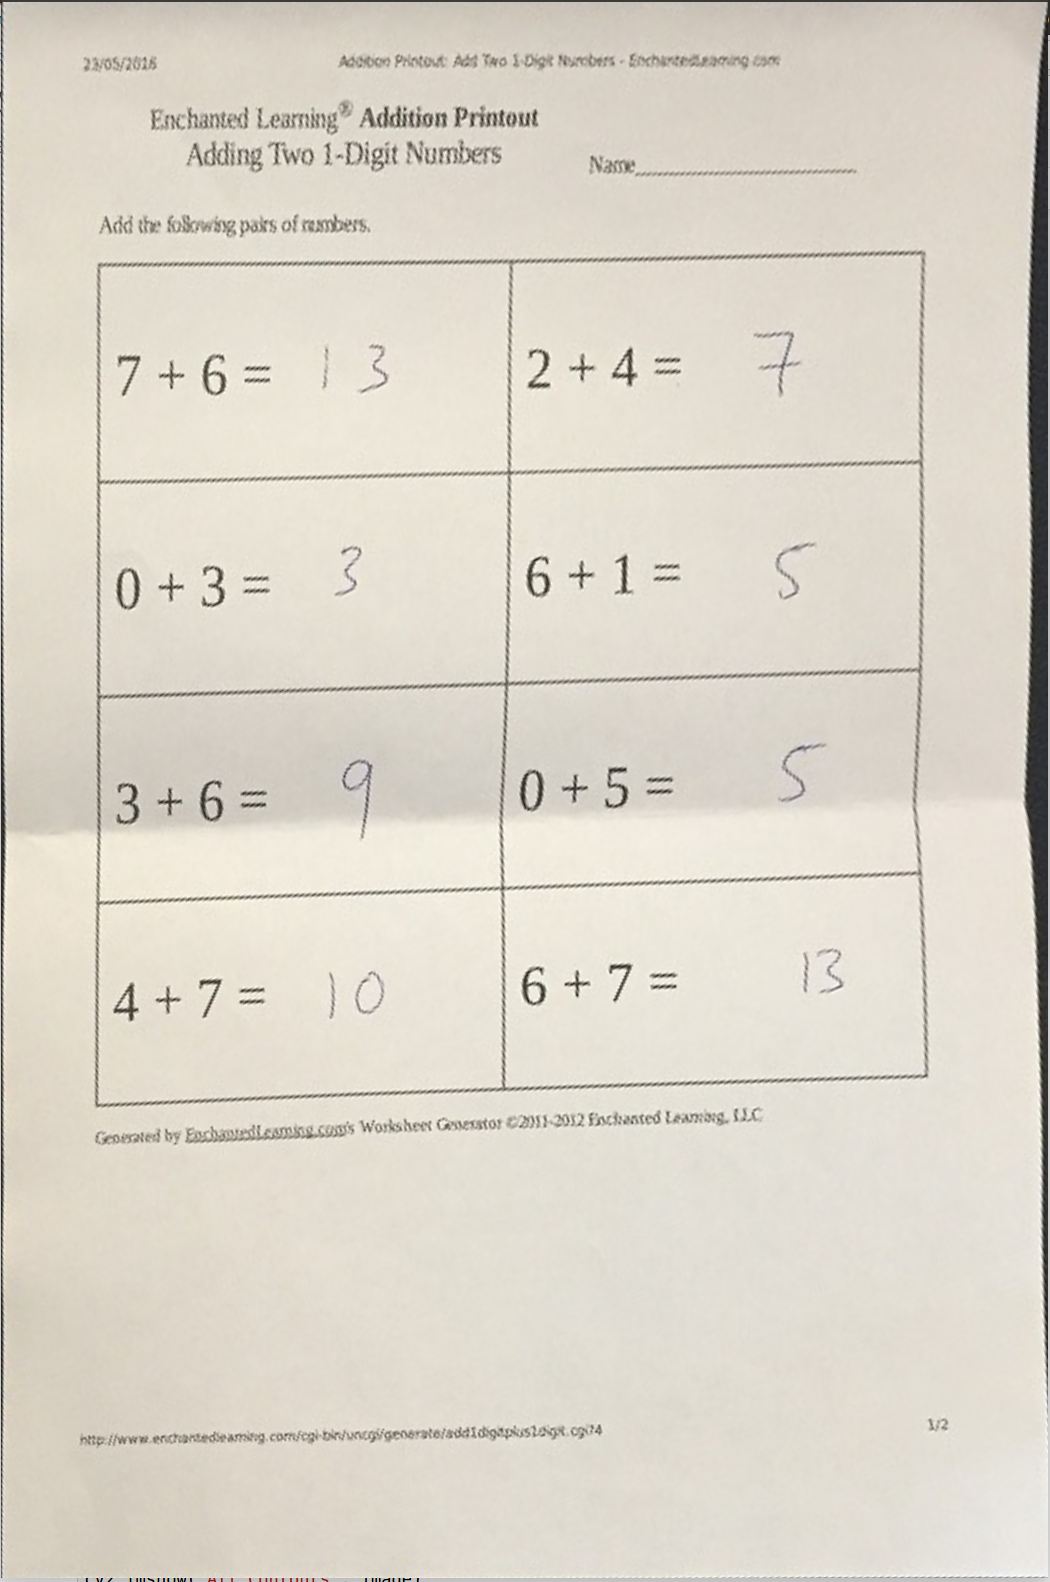 23/05/2016 Addition Printout: Add Two 1-Digit Numbers - EnchantedLearning.com
Enchanted Learning® Addition Printout
Adding Two 1-Digit Numbers
Name
Add the following pairs of numbers.
7 + 6 = 13 2 + 4 = 7
0 + 3 = 3 6 + 1 = 5
3 + 6 = 9 0 + 5 = 5
4 + 7 = 10 6 + 7 = 13
Generated by EnchantedLearning.com's Worksheet Generator ©2011-2012 Enchanted Learning, LLC
http://www.enchantedlearning.com/cgi-bin/uncgi/generate/add1digitplus1digit.cgi?4 1/2